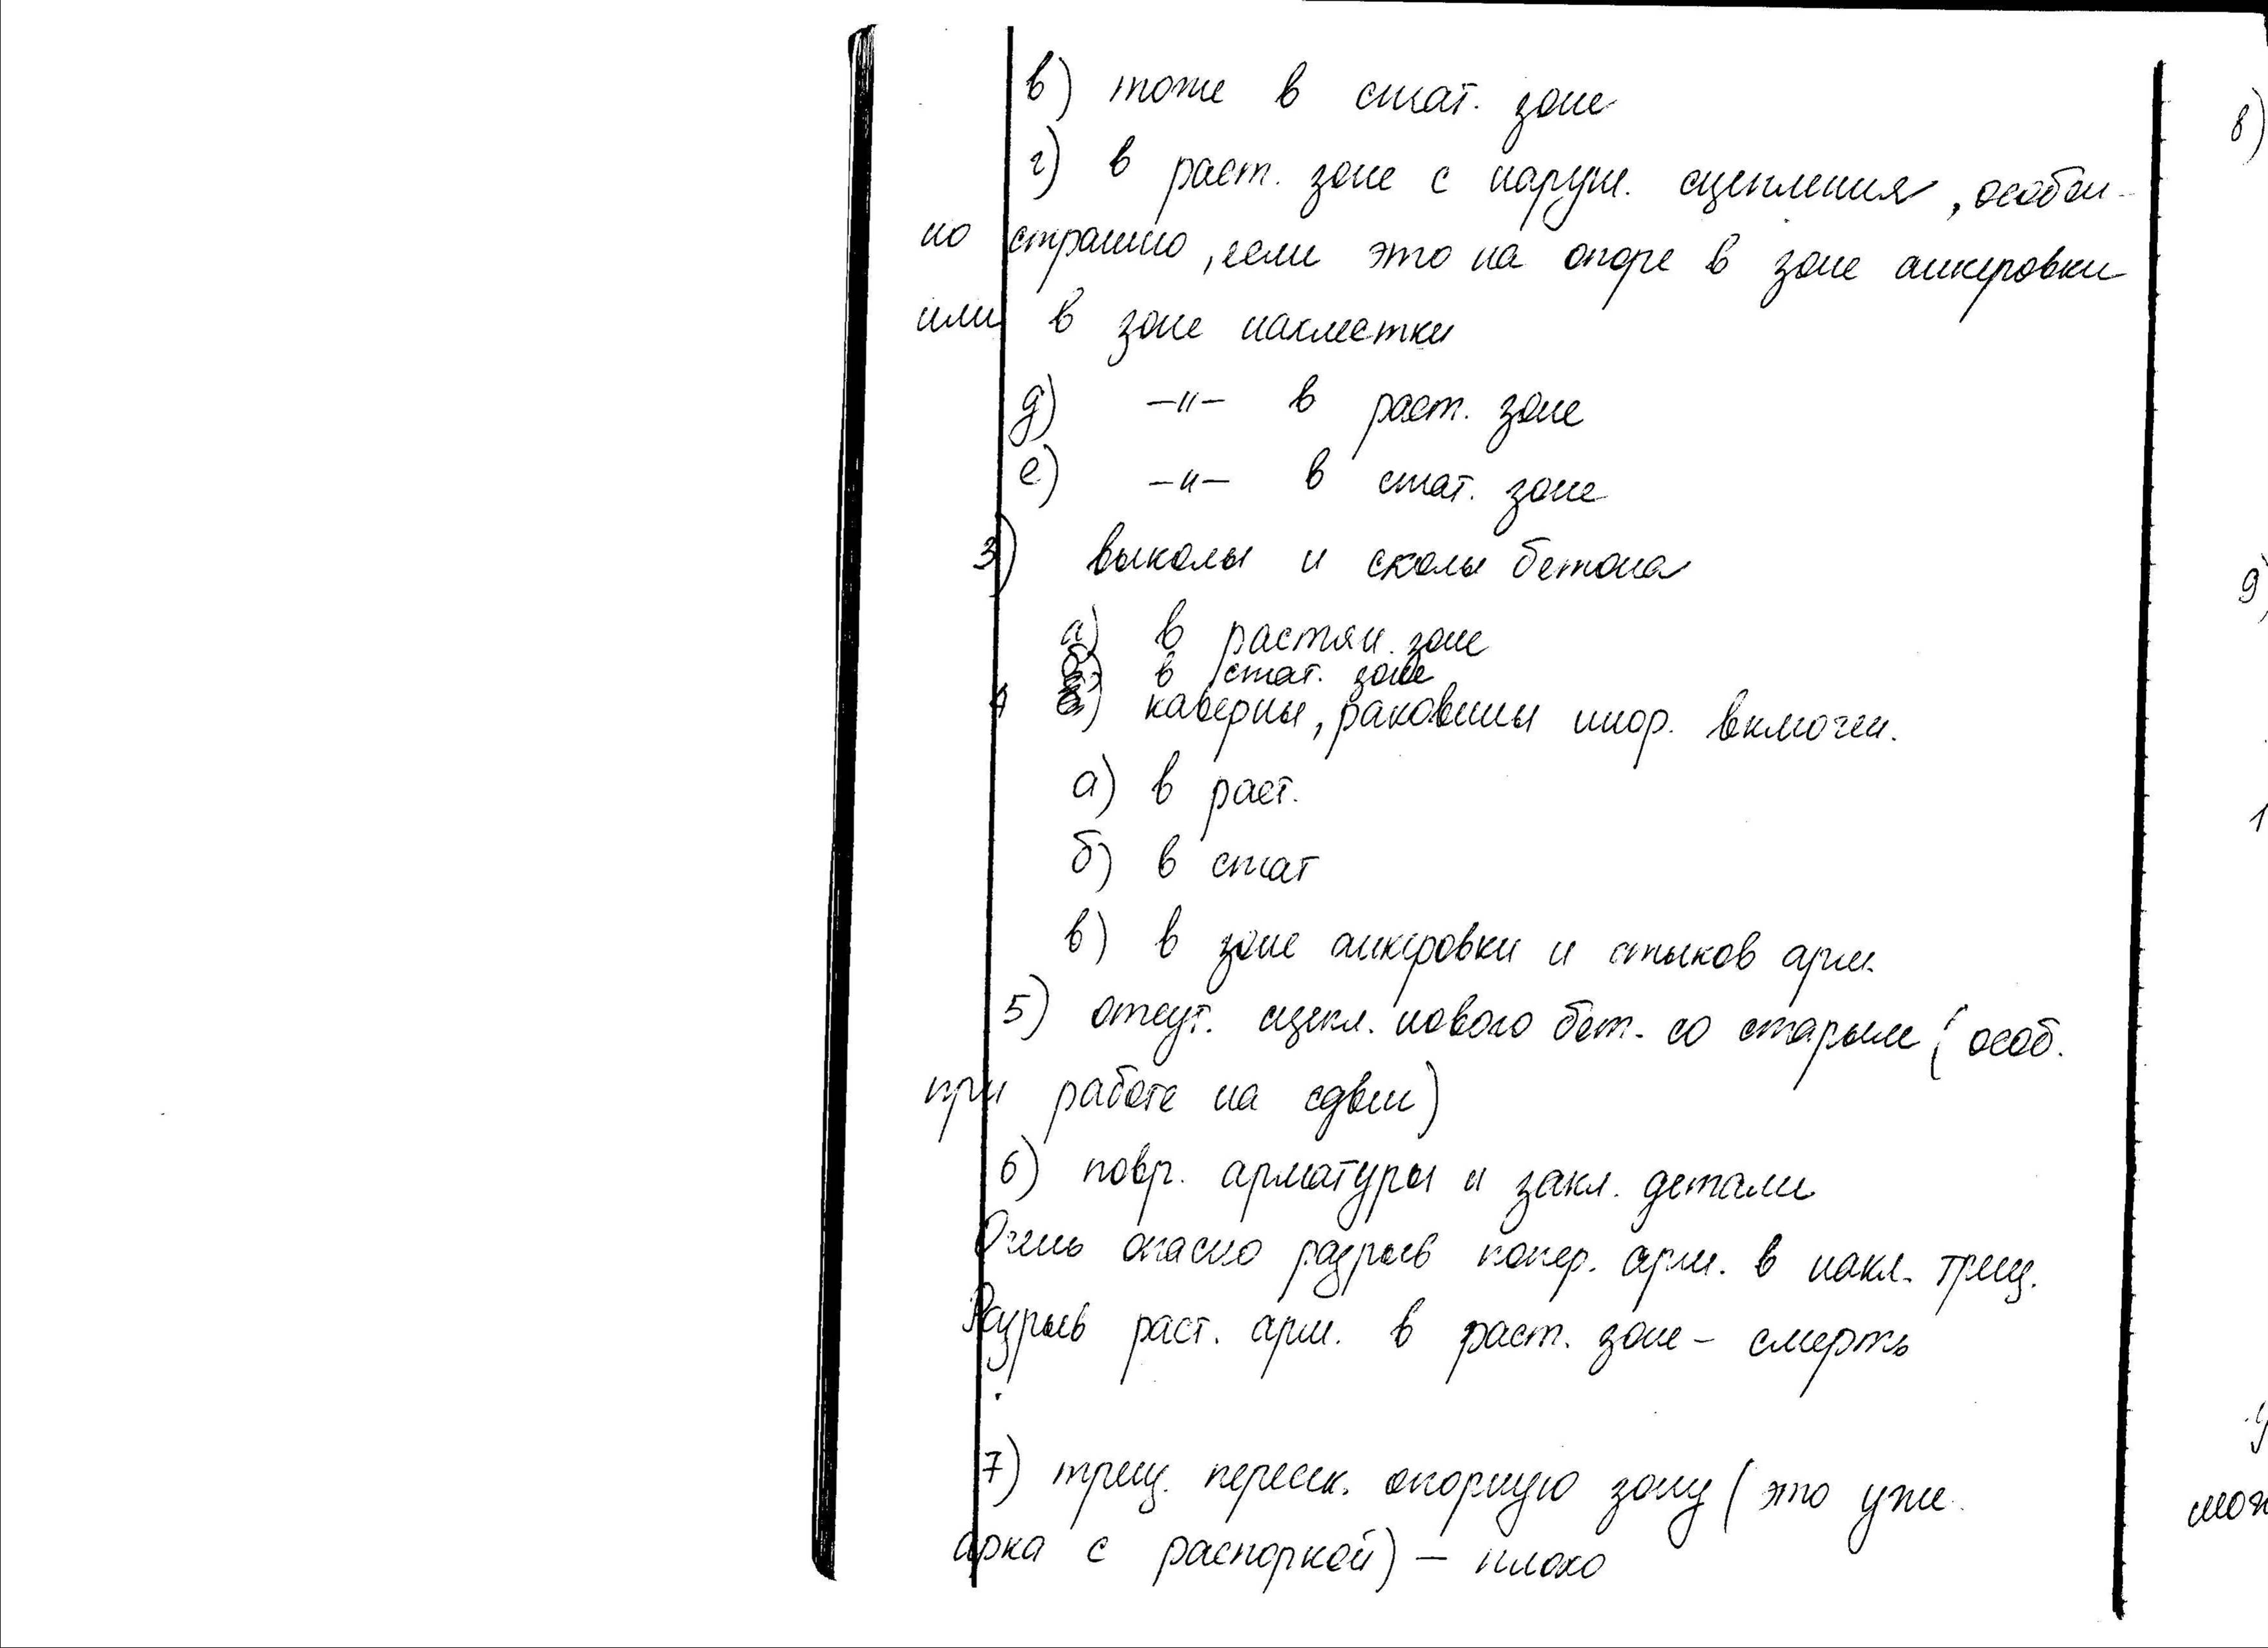 в) тоже в сжат. зоне
г) в раст. зоне с наруш. сцепления, особен-
но страшно, если это на опоре в зоне анкеровки
или в зоне нахлестки
д) –"– в раст. зоне
е) –"– в сжат. зоне
3) выколы и сколы бетона
а) в растян. зоне
б) в сжат. зоне
4) каверны, раковины инор. включен.
а) в раст.
б) в сжат
в) в зоне анкеровки и стыков арм.
5) отсут. сцепл. нового бет. со старым (особ.
при работе на сдвиг)
6) повр. арматуры и закл. детали
Очень опасно разрыв попер. арм. в накл. трещ.
Разрыв раст. арм. в раст. зоне – смерть
7) трещ. пересек. опорную зону (это уже
арка с распоркой) – плохо
8)
9)
1
мож